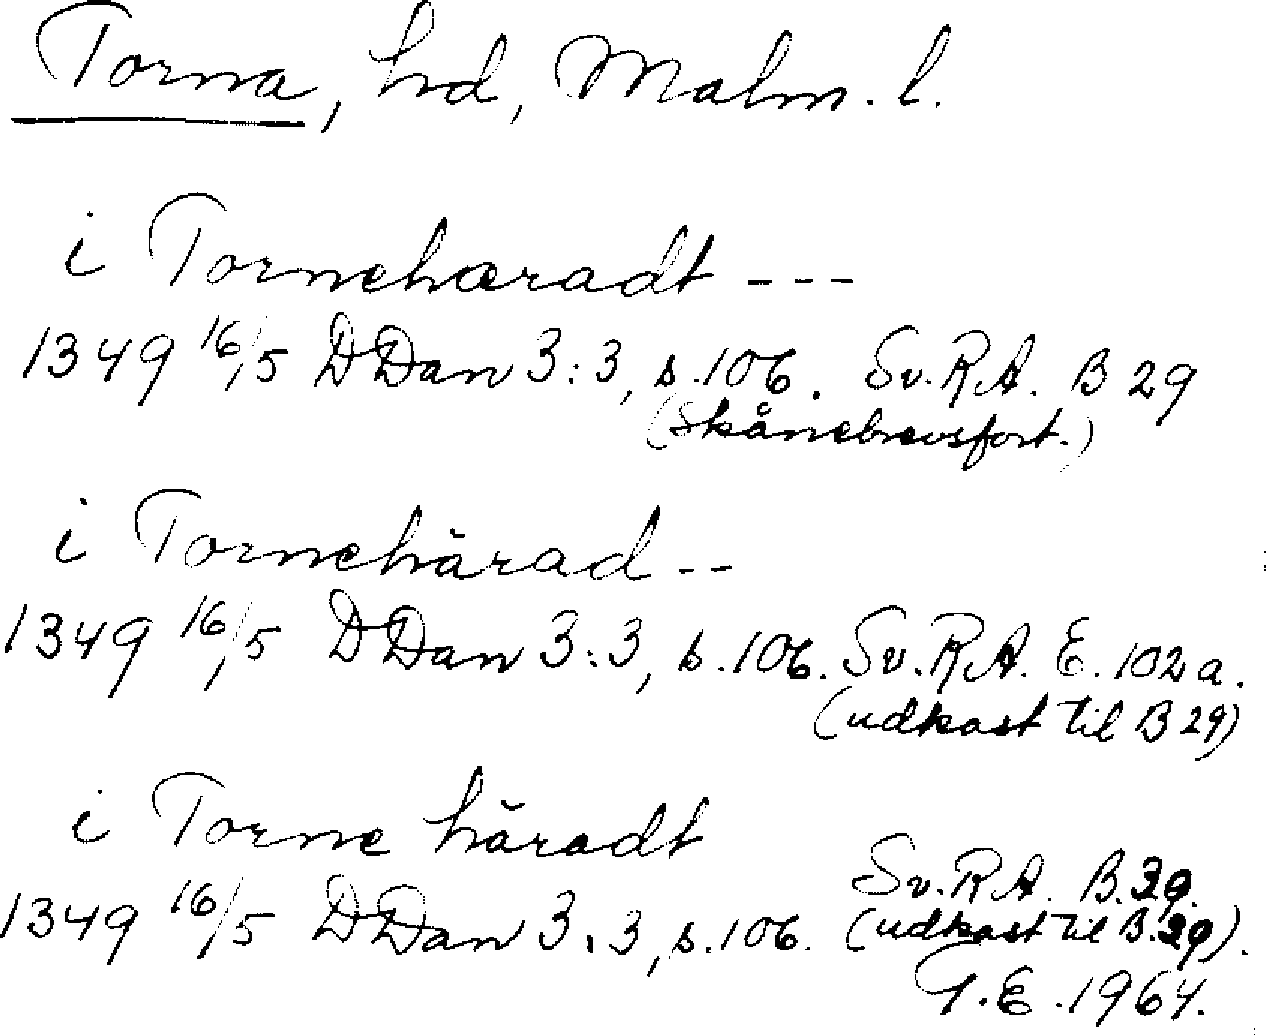 Torna, hd, Malm. l.
i Tornehæradt ---
1349 16/5 DDan 3:3, s.106. Sv.RA. B 29
(Skånebrevsfort.)
i Tornehärad --
1349 16/5 DDan 3:3, s.106. Sv.RA. E. 102a.
(udkast til B 29)
i Torne häradt
1349 16/5 DDan 3:3, s.106. Sv.RA. B.39.
(udkast til B.29).
T.E. 1964.